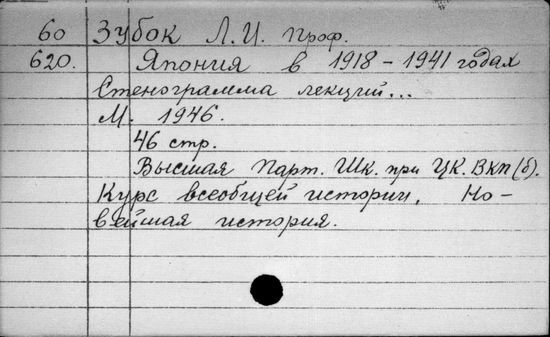 60 Зубок Л. И. проф.
620. Япония в 1918 - 1941 годах
Стенограмма лекций...
М. 1946.
46 стр.
Высшая Парт. Шк. при ЦК. ВКП(б).
Курс всеобщей истории. Но-
вейшая история.